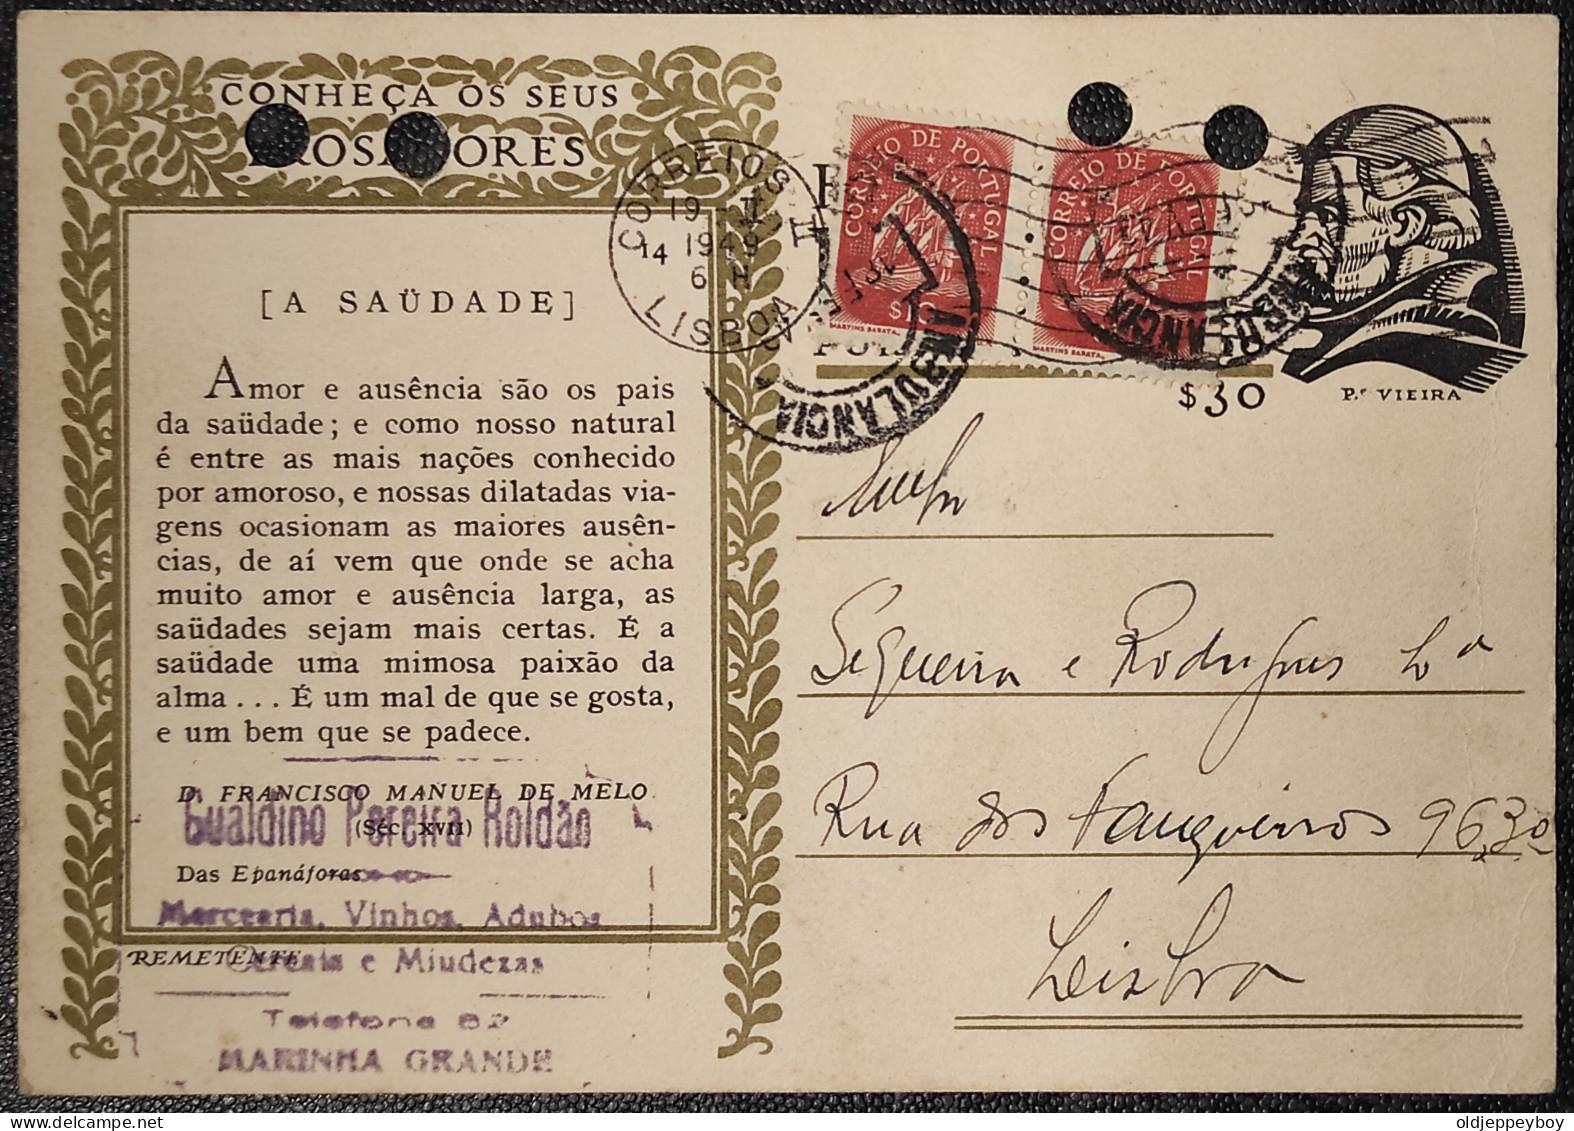 CONHEÇA OS SEUS
PROSADORES
[A SAÜDADE]
Amor e ausência são os pais
da saüdade; e como nosso natural
é entre as mais nações conhecido
por amoroso, e nossas dilatadas via-
gens ocasionam as maiores ausên-
cias, de aí vem que onde se acha
muito amor e ausência larga, as
saüdades sejam mais certas. É a
saüdade uma mimosa paixão da
alma . . . É um mal de que se gosta,
e um bem que se padece.
D. FRANCISCO MANUEL DE MELO
(Séc. XVII)
Das Epanáforas
REMETENTE
Gualdino Pereira Roldão
Mercearia, Vinhos, Adubos
Cereais e Miudezas
Telefone 82
MARINHA GRANDE
CORREIOS
19
1949
14
6 H
LISBOA
CORREIO DE PORTUGAL
$10
MARTINS BARATA
CORREIO DE PORTUGAL
MARTINS BARATA
AMBULANCIA
AMBULANCIA
$30
P.e VIEIRA
Sequeira e Rodrigues Lda
Rua dos Fanqueiros 96,3º
Lisboa